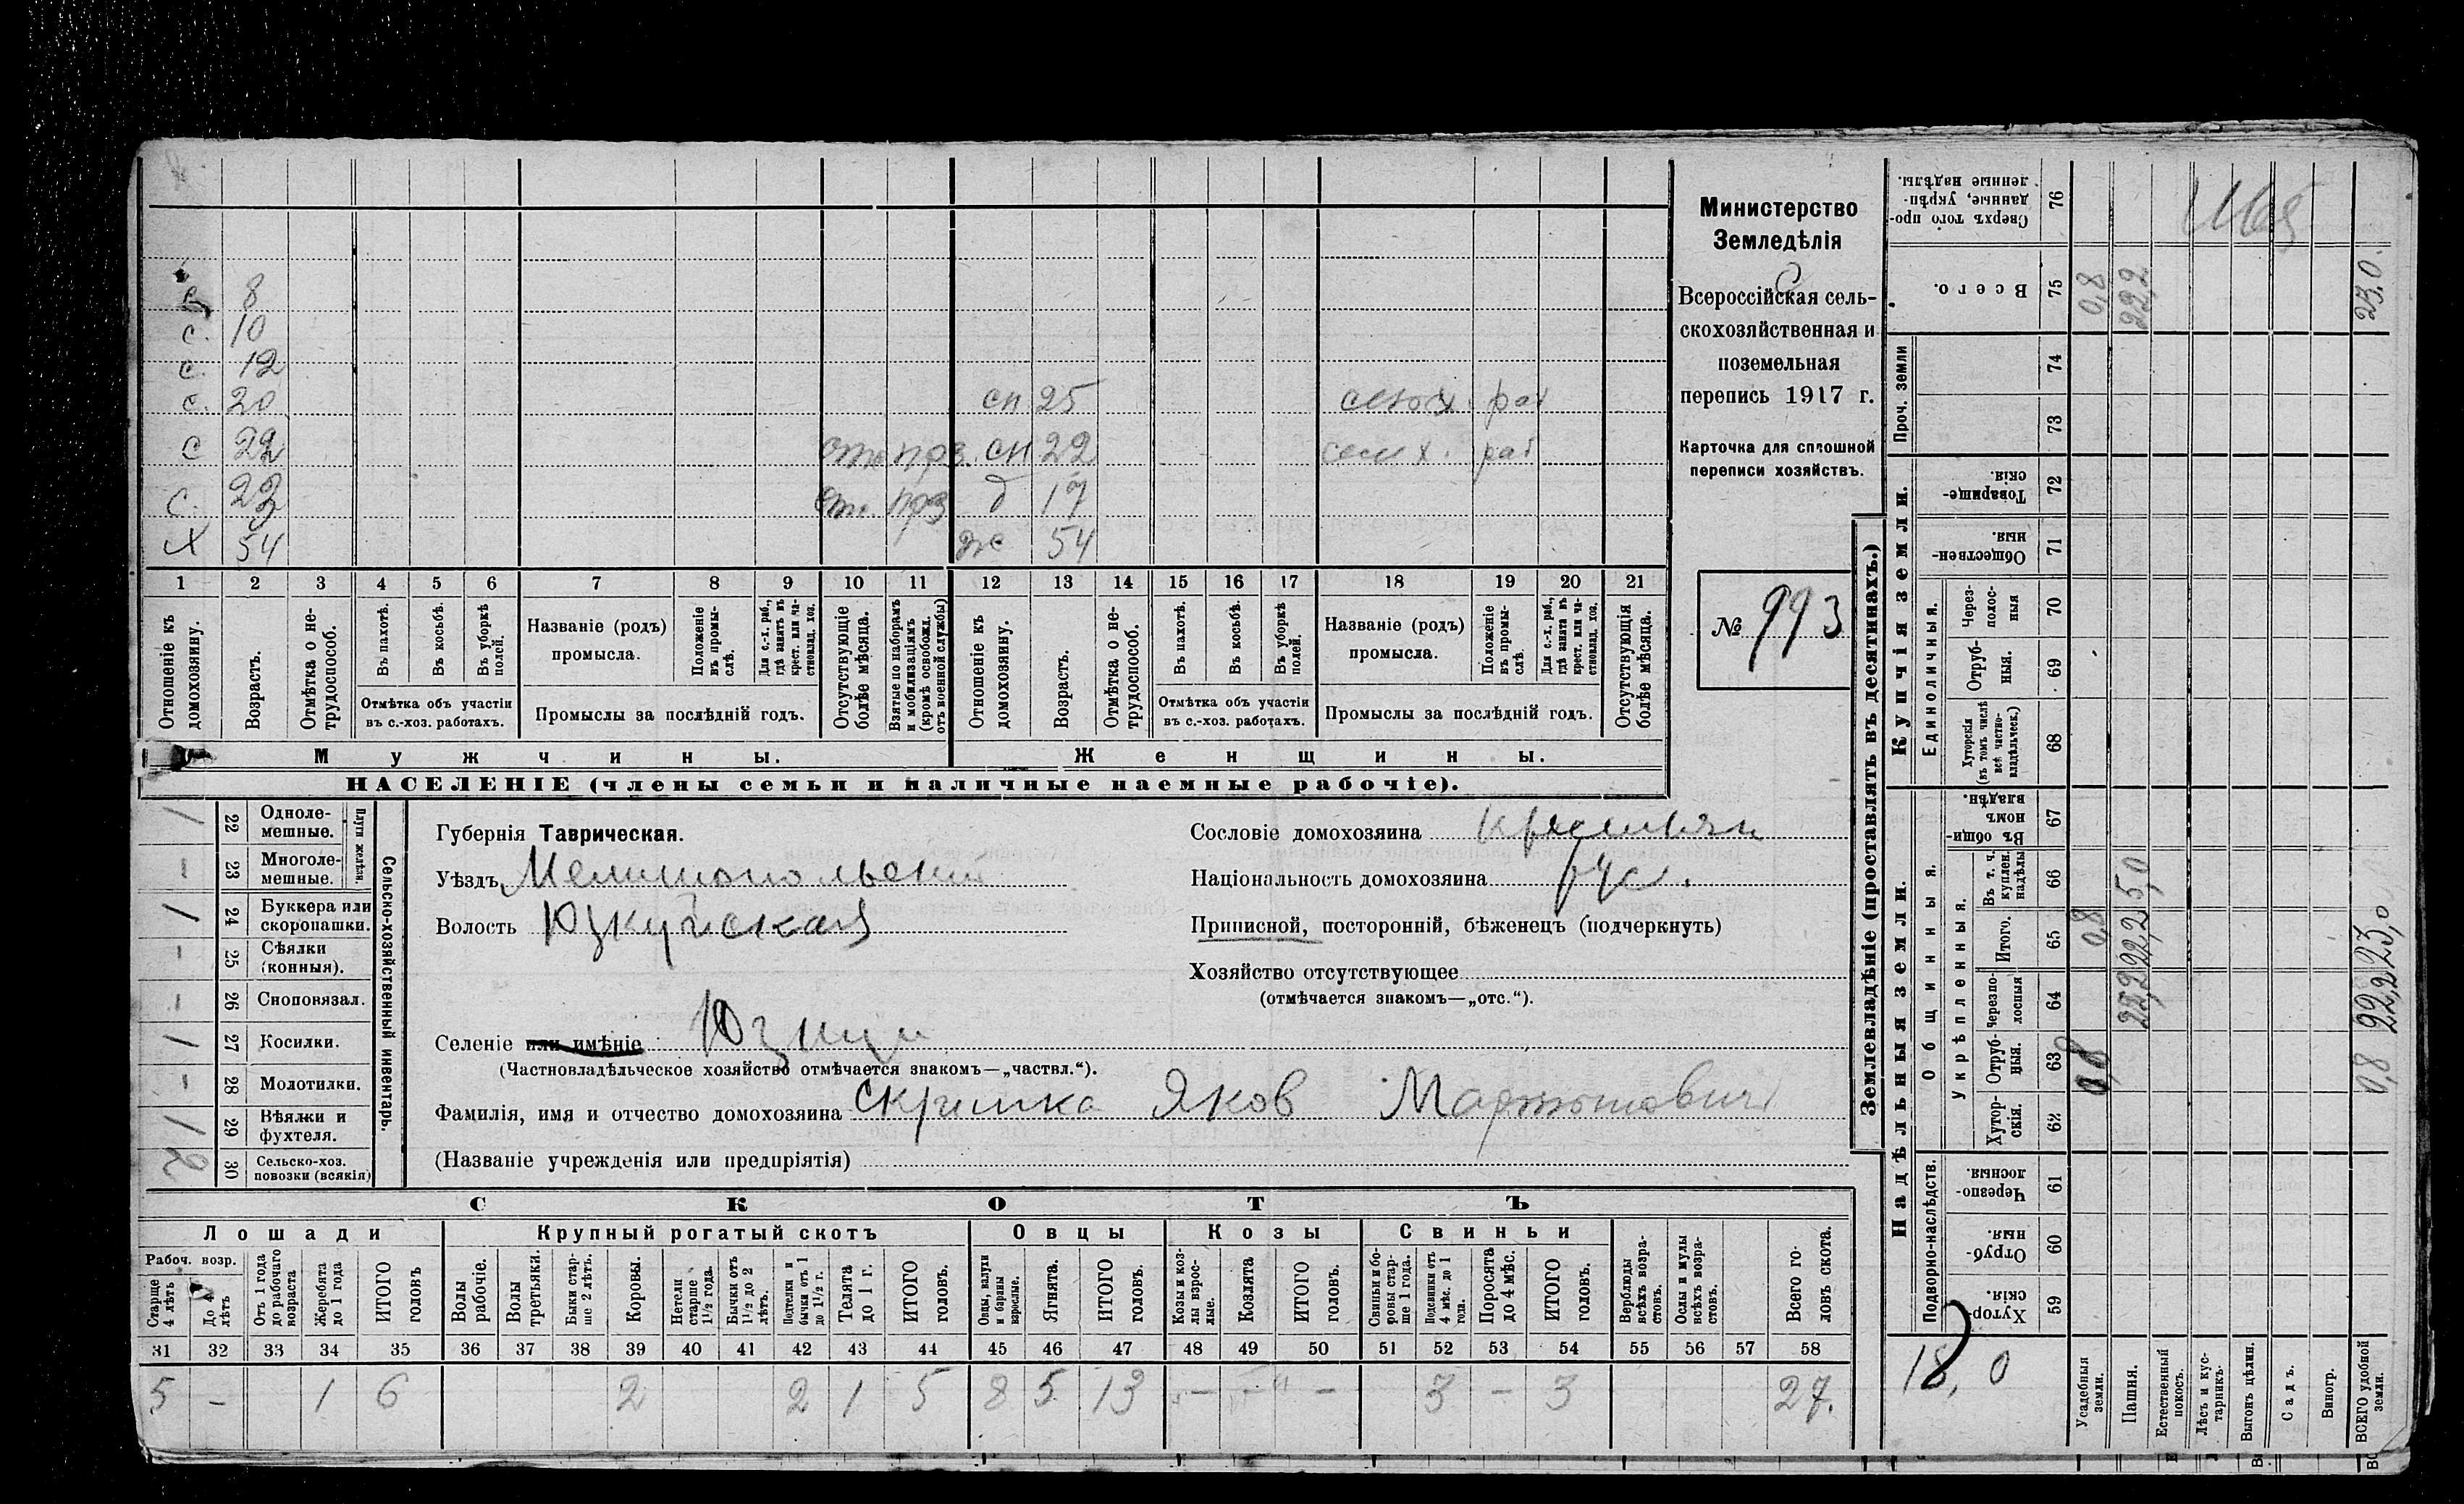 Министерство
Земледѣлія
Всероссійская сель-
скохозяйственная и
поземельная
перепись 1917 г.
Карточка для сплошной
переписи хозяйствъ.
№ 993
с 8
с. 10
с. 12
с. 20 сп 25
с 22 сп 22
с. 23 д 17
Х 54 ж 54
1 2 3 4 5 6 7 8 9 10 11 12 13 14 15 16 17 18 19 20 21
Отношеніе къ домохозяину.
Возрастъ.
Отмѣтка о не-трудоспособ.
Въ пахотѣ.
Въ косьбѣ.
Въ уборкѣ полей.
Отмѣтка объ участіи
въ с.-хоз. работахъ.
Названіе (родъ)
промысла.
Положеніе въ промы-слѣ.
Для с.-х. раб., гдѣ занятъ въ крест. или ча-стновлад. хоз.
Промыслы за послѣдній годъ.
Отсутствующіе болѣе мѣсяца.
Взятые по наборамъ и мобилизаціямъ (кромѣ освобожд. отъ военной службы)
Отношеніе къ домохозяину.
Возрастъ.
Отмѣтка о не-трудоспособ.
Въ пахотѣ.
Въ косьбѣ.
Въ уборкѣ полей.
Отмѣтка объ участіи
въ с.-хоз. работахъ.
Названіе (родъ)
промысла.
Положеніе въ промы-слѣ.
Для с.-х. раб., гдѣ занята въ крест. или ча-стновлад. хоз.
Промыслы за послѣдній годъ.
Отсутствующія болѣе мѣсяца.
Мужчины. Женщины.
НАСЕЛЕНІЕ (члены семьи и наличные наемные рабочіе).
Сельско-хозяйственный инвентарь.
Плуги желѣзн.
1 22 Одноле-мешные.
— 23 Многоле-мешные.
1 24 Буккера или скоропашки.
— 25 Сѣялки (конныя).
— 26 Сноповязал.
1 27 Косилки.
— 28 Молотилки.
1 29 Вѣялки и фухтеля.
2 30 Сельско-хоз. повозки (всякія)
Губернія Таврическая.
Уѣздъ Мелитопольский
Волость Юзкуйская
Селеніе или имѣніе Юзкуи
(Частновладѣльческое хозяйство отмѣчается знакомъ—„частвл.“).
Фамилія, имя и отчество домохозяина Яков Мартынович
(Названіе учрежденія или предпріятія)
Сословіе домохозяина крестьян
Національность домохозяина рус.
Приписной, посторонній, бѣженецъ (подчеркнуть)
Хозяйство отсутствующее
(отмѣчается знакомъ—„отс.“).
СКОТЪ
Лошади Крупный рогатый скотъ Овцы Козы Свиньи
Рабоч. возр.
Старше 4 лѣтъ
До 4 лѣтъ
Отъ 1 года до рабочаго возраста
Жеребята до 1 года
ИТОГО головъ
Волы рабочіе.
Волы третьяки.
Быки стар-ше 2 лѣтъ.
Коровы.
Нетели старше 1½ года.
Бычки отъ 1½ до 2 лѣтъ.
Подтелки и бычки отъ 1 до 1½ г.
Телята до 1 г.
ИТОГО головъ.
Овцы, валухи и бараны взрослые.
Ягнята.
ИТОГО головъ.
Козы и коз-лы взрос-лые.
Козлята
ИТОГО головъ.
Свиньи и бо-ровы стар-ше 1 года.
Подсвинки отъ 4 мѣс. до 1 года.
Поросята до 4 мѣс.
ИТОГО головъ.
Верблюды всѣхъ возра-стовъ.
Ослы и мулы всѣхъ возра-стовъ.
Всего го-ловъ скота.
31 32 33 34 35 36 37 38 39 40 41 42 43 44 45 46 47 48 49 50 51 52 53 54 55 56 57 58
5 — 1 6 2 2 1 5 8 5 13 — — — 3 — 3 27.
Землевладѣніе (проставлять въ десятинахъ.)
Купчія земли.
Надѣльныя земли.
Сверхъ того про-данные, укрѣп-ленные надѣлы. 76
Всего. 75 0,8 22,2 23,0.
Проч. земли 74 73
Товарище-скія. 72
Обществен-ныя. 71
Единоличныя.
Через-полос-ныя 70
Отруб-ныя. 69
Хуторскія (въ томъ числѣ всѣ частно-владѣльческ.) 68
Общинныя.
Въ общин-номъ владѣн. 67
Укрѣпленныя.
Въ т. ч. куплен. надѣлы 66 5,0
Итого. 65 0,8 22,2 23,0
Черезпо-лосныя 64 22,2 22,2
Отруб-ныя. 63 0,8 0,8
Хутор-скія. 62
Подворно-наслѣдств.
Черезпо-лосныя. 61
Отруб-ныя. 60
Хутор-скія. 59
18,0
Усадебныя земли.
Пашня.
Естественный покосъ.
Лѣсъ и кус-тарникъ.
Выгонъ цѣлин.
Садъ.
Виногр.
ВСЕГО удобной земли.